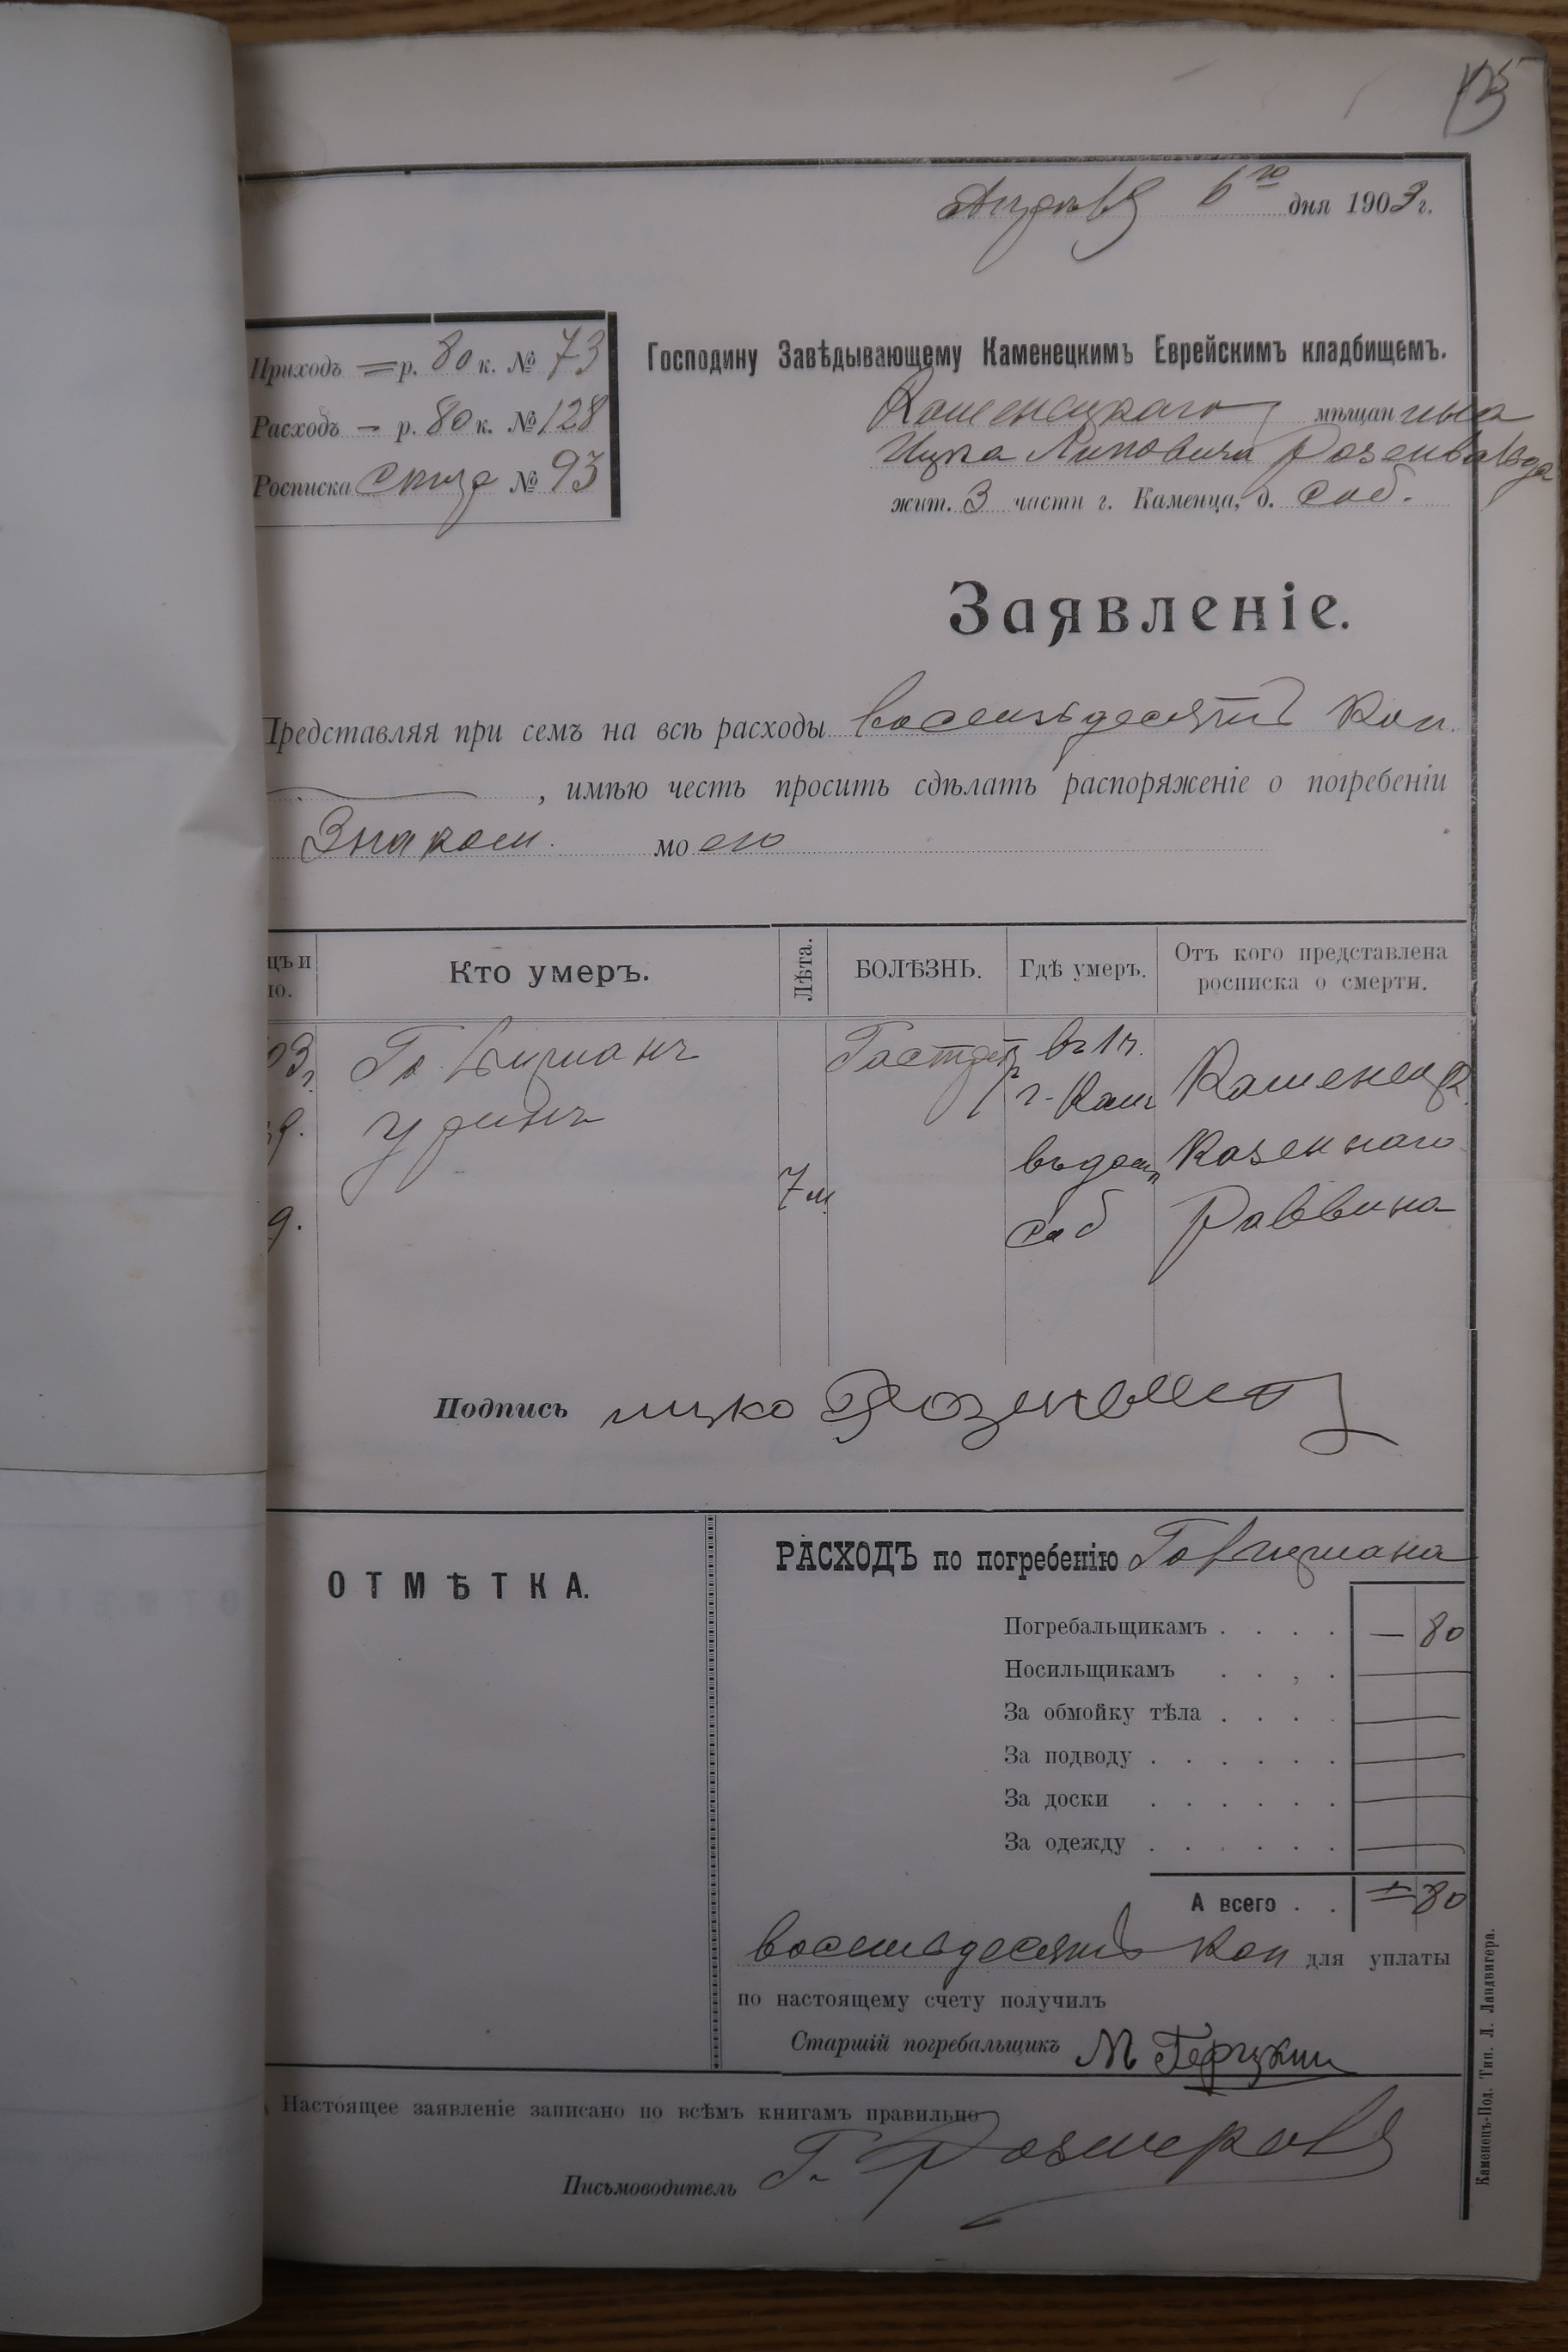 Апрѣля 6го дня 1903 г.
Приходъ = р. 80 к. № 73
Расходъ – р. 80 к. № 128
Росписка № 93
Господину Завѣдывающему Каменецкимъ Еврейскимъ кладбищемъ.
Каменецкаго мѣщанина
Ицка Липовича
жит. 3 части г. Каменца, д. соб.
Заявленіе.
Представляя при семъ на всѣ расходы восемьдесятъ коп.
, имѣю честь просить сдѣлать распоряженіе о погребеніи
Знаком. моего
цъ и
ло.
Кто умеръ.
Лѣта.
БОЛѢЗНЬ.
Гдѣ умеръ.
Отъ кого представлена
росписка о смерти.
03 г.
9.
7 м
въ 1 ч.
г. Кам
въ дом
соб
Каменецк.
Казеннаго
Раввина
Подпись ицко
ОТМѢТКА.
РАСХОДЪ по погребенію
Погребальщикамъ . . . . — 80
Носильщикамъ . . , .
За обмойку тѣла . . . .
За подводу . . . . . .
За доски . . . . . .
За одежду . . . . . .
А всего . . 80
восемьдесятъ коп для уплаты
по настоящему счету получилъ
Старшій погребальщикъ М
Настоящее заявленіе записано по всѣмъ книгамъ правильно
Письмоводитель Г.
Каменецъ-Под. Тип. Л. Ландвигера.